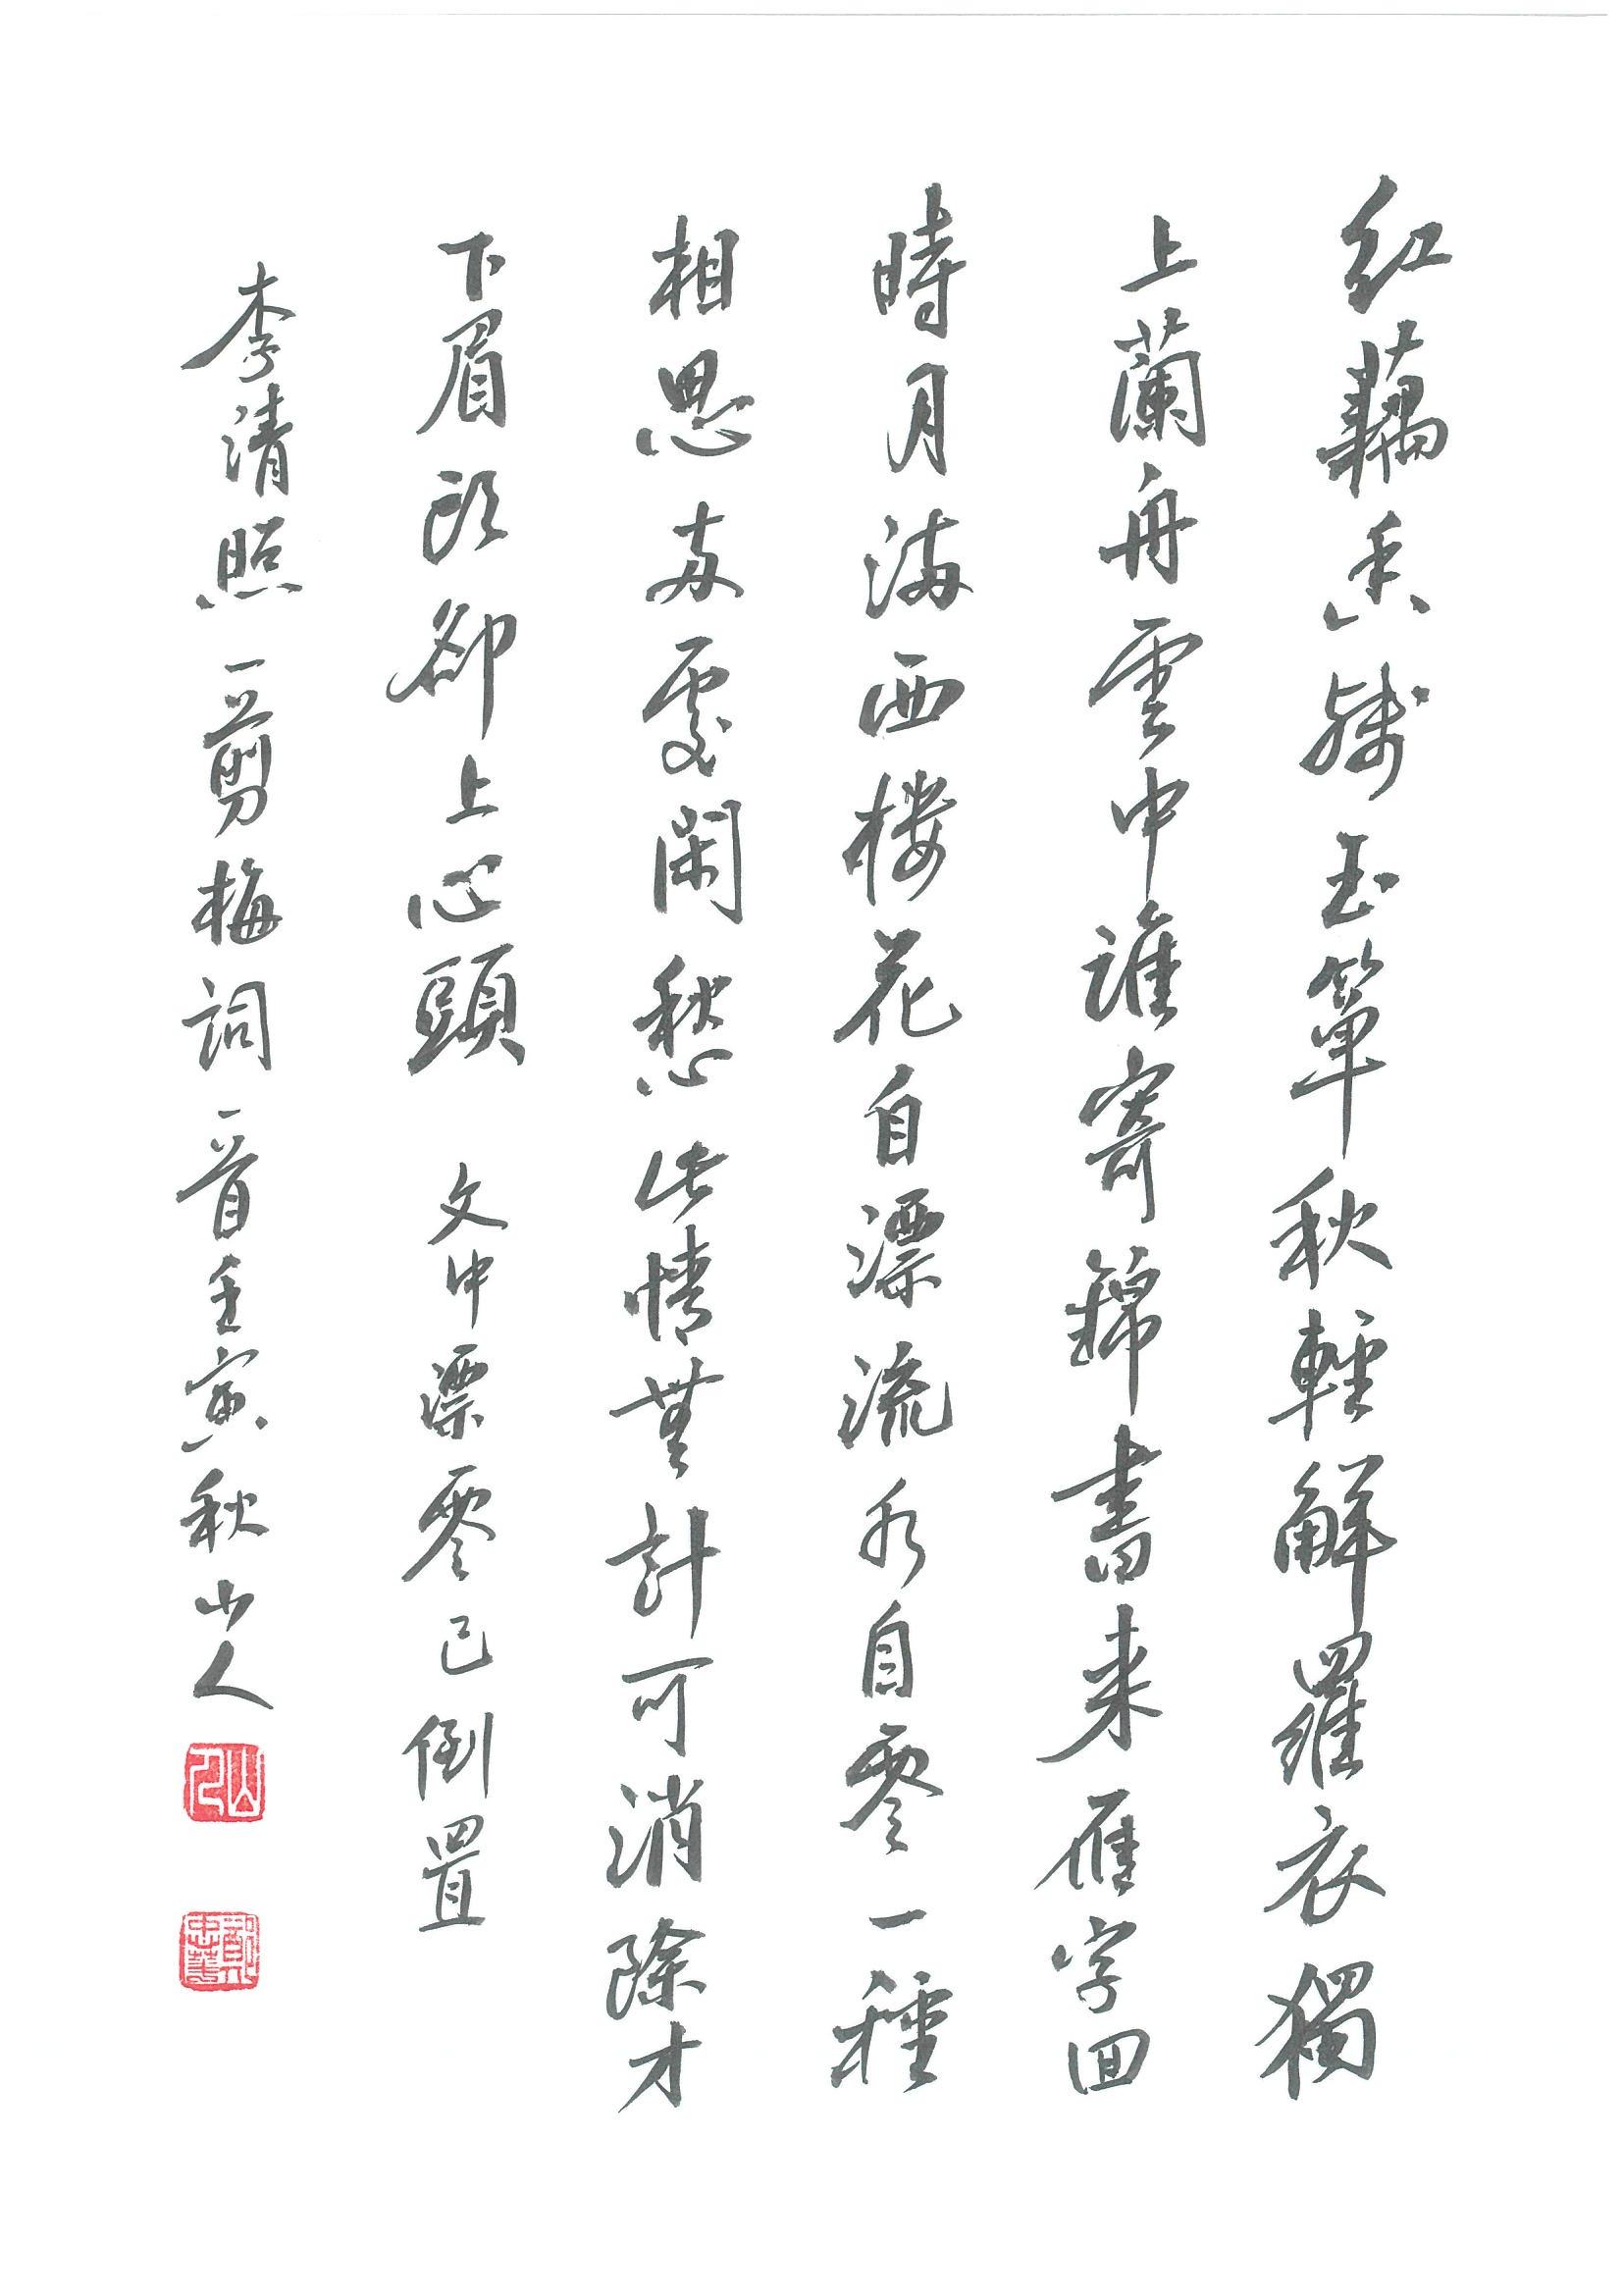 红藕香残玉簟秋輕解羅衣獨
上蘭舟雲中誰寄錦書来雁字回
時月满西楼花自漂流水自零一種
相思两處閑愁此情無計可消除才
下眉头卻上心頭 文中漂零已倒置
李清照一剪梅詞一首壬寅秋山人
山人